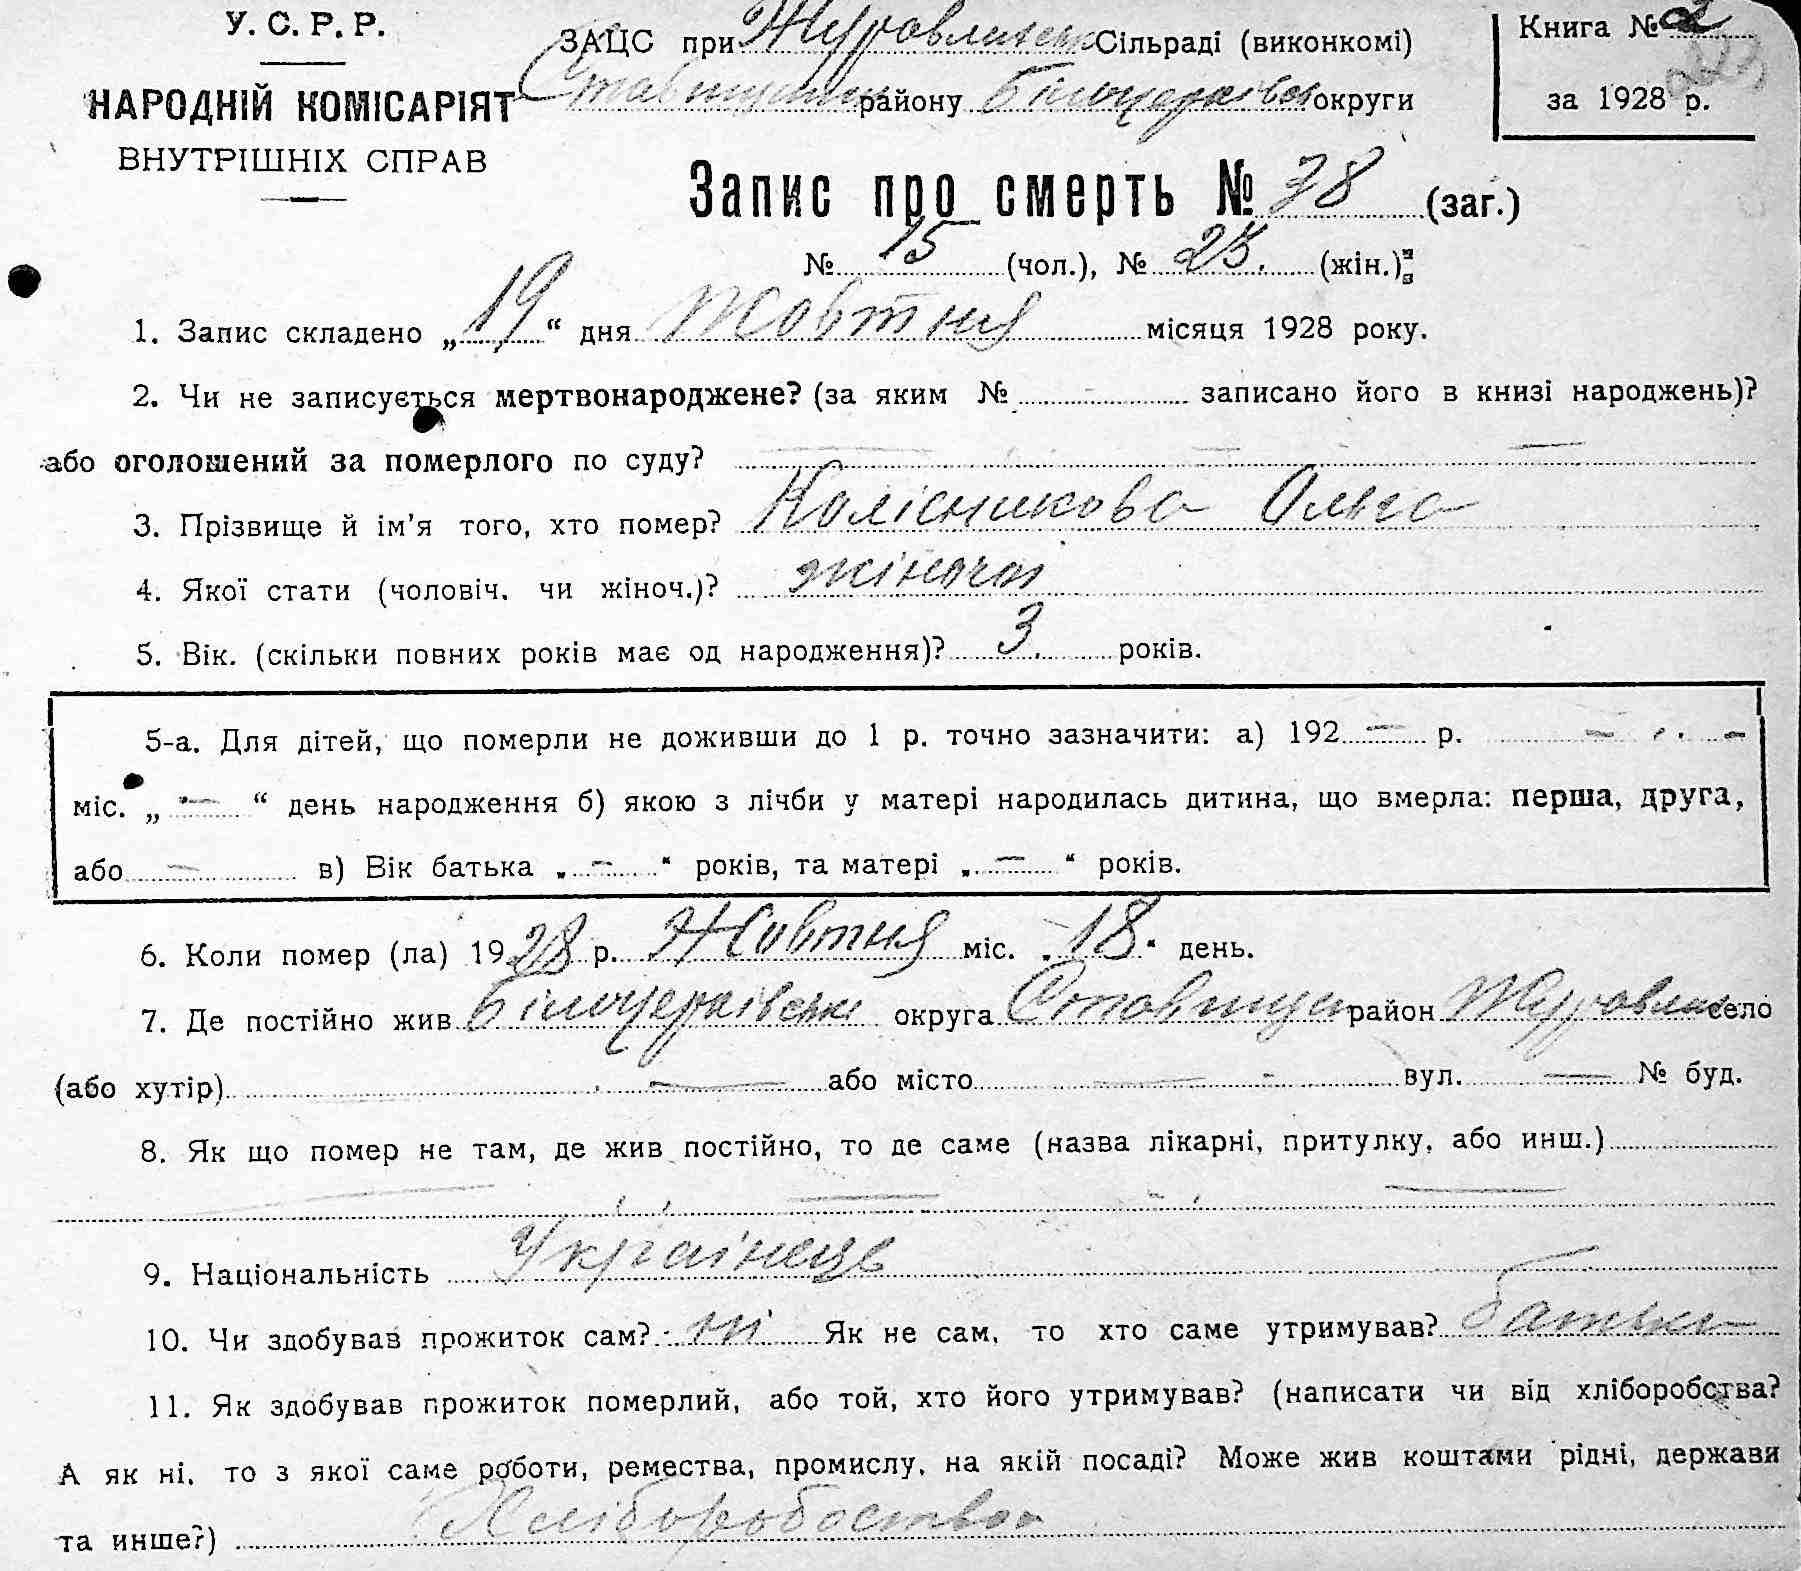 У. С. Р. Р.
НАРОДНІЙ КОМІСАРІЯТ
ВНУТРІШНІХ СПРАВ
ЗАЦС при Журавлинськ Сільраді (виконкомі)
Ставищенськ району Білоцерківськ округи
Книга № 2
за 1928 р.
Запис про смерть № 38 (заг.)
№ 15 (чол.), № 23. (жін.)
1. Запис складено „19“ дня Жовтня місяця 1928 року.
2. Чи не записується мертвонароджене? (за яким № - записано його в книзі народжень)?
або оголошений за померлого по суду? —
3. Прізвище й ім’я того, хто помер? Колісникова Ольга
4. Якої стати (чоловіч. чи жіноч.)? жіночої
5. Вік. (скільки повних років має од народження)? 3 років.
5-а. Для дітей, що померли не доживши до 1 р. точно зазначити: а) 192 — р. — —
міс. „ — “ день народження б) якою з лічби у матері народилась дитина, що вмерла: перша, друга,
або — в) Вік батька „ — “ років, та матері „ — “ років.
6. Коли помер (ла) 1928 р. Жовтня міс. „18“ день.
7. Де постійно жив Білоцерківськ округа район село
(або хутір) — або місто — вул. — № буд.
8. Як що помер не там, де жив постійно, то де саме (назва лікарні, притулку, або инш.)
— — —
9. Національність Українець
10. Чи здобував прожиток сам? ні Як не сам, то хто саме утримував? батько
11. Як здобував прожиток померлий, або той, хто його утримував? (написати чи від хліборобства?
А як ні, то з якої саме роботи, ремества, промислу, на якій посаді? Може жив коштами рідні, держави
та инше?) Хліборобство